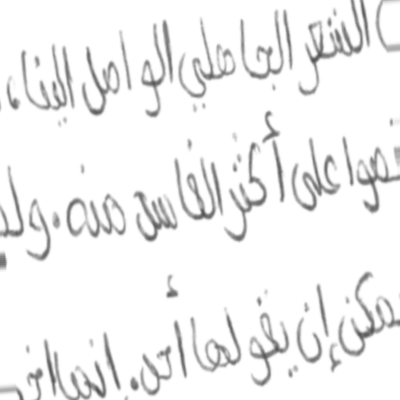 الشعر الجاهلي الواصل إلينا،
على أكثر الناس منه. و
إن يقولها أحد. إنما